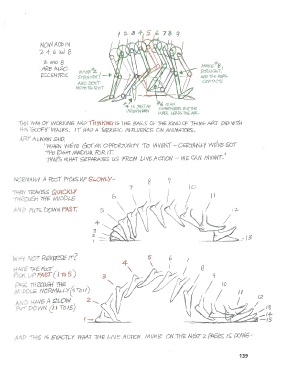 1 2 3 4 5 6 7 8 9
NOW ADD IN
2, 4, 6 & 8
2 AND 8
ARE ALSO
ECCENTRIC
MAKE 2
STRAIGHT
MAKE 8
STRAIGHT,
THIS WAY OF WORKING AND THINKING IS THE BASIS OF THE KIND OF THING ART DID WITH
HIS GOOFY WALKS. IT HAD A TERRIFIC INFLUENCE ON ANIMATORS.
ART ALWAYS SAID,
'WHEN WE'VE GOT AN OPPORTUNITY TO INVENT – CERTAINLY WE'VE GOT
THE RIGHT MEDIUM FOR IT.
THAT'S WHAT SEPARATES US FROM LIVE ACTION – WE CAN INVENT.'
NORMALLY A FOOT PICKS UP SLOWLY –
THEN TRAVELS QUICKLY
THROUGH THE MIDDLE
AND PUTS DOWN FAST.
1
2
3
4
5
6
7
8
9
10
11
12
13
WHY NOT REVERSE IT?
HAVE THE FOOT
PICK UP FAST (1 TO 5)
PASS THROUGH THE
MIDDLE NORMALLY
AND HAVE A SLOW
PUT DOWN
1
2
3
4
5
6
7
8
9
10
11
12
13
14
15
AND THIS IS EXACTLY WHAT THE LIVE ACTION MIME ON THE NEXT 2 PAGES IS DOING –
139